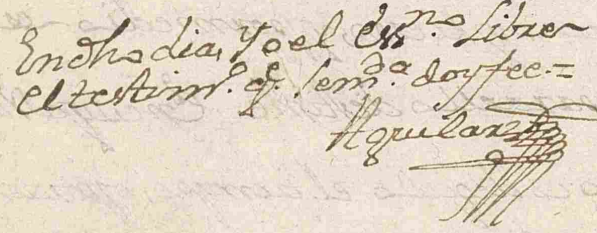 En dho dia, Yo el Essno. Libre
el testimo. q. se mda. doy fee.=
Aguilar